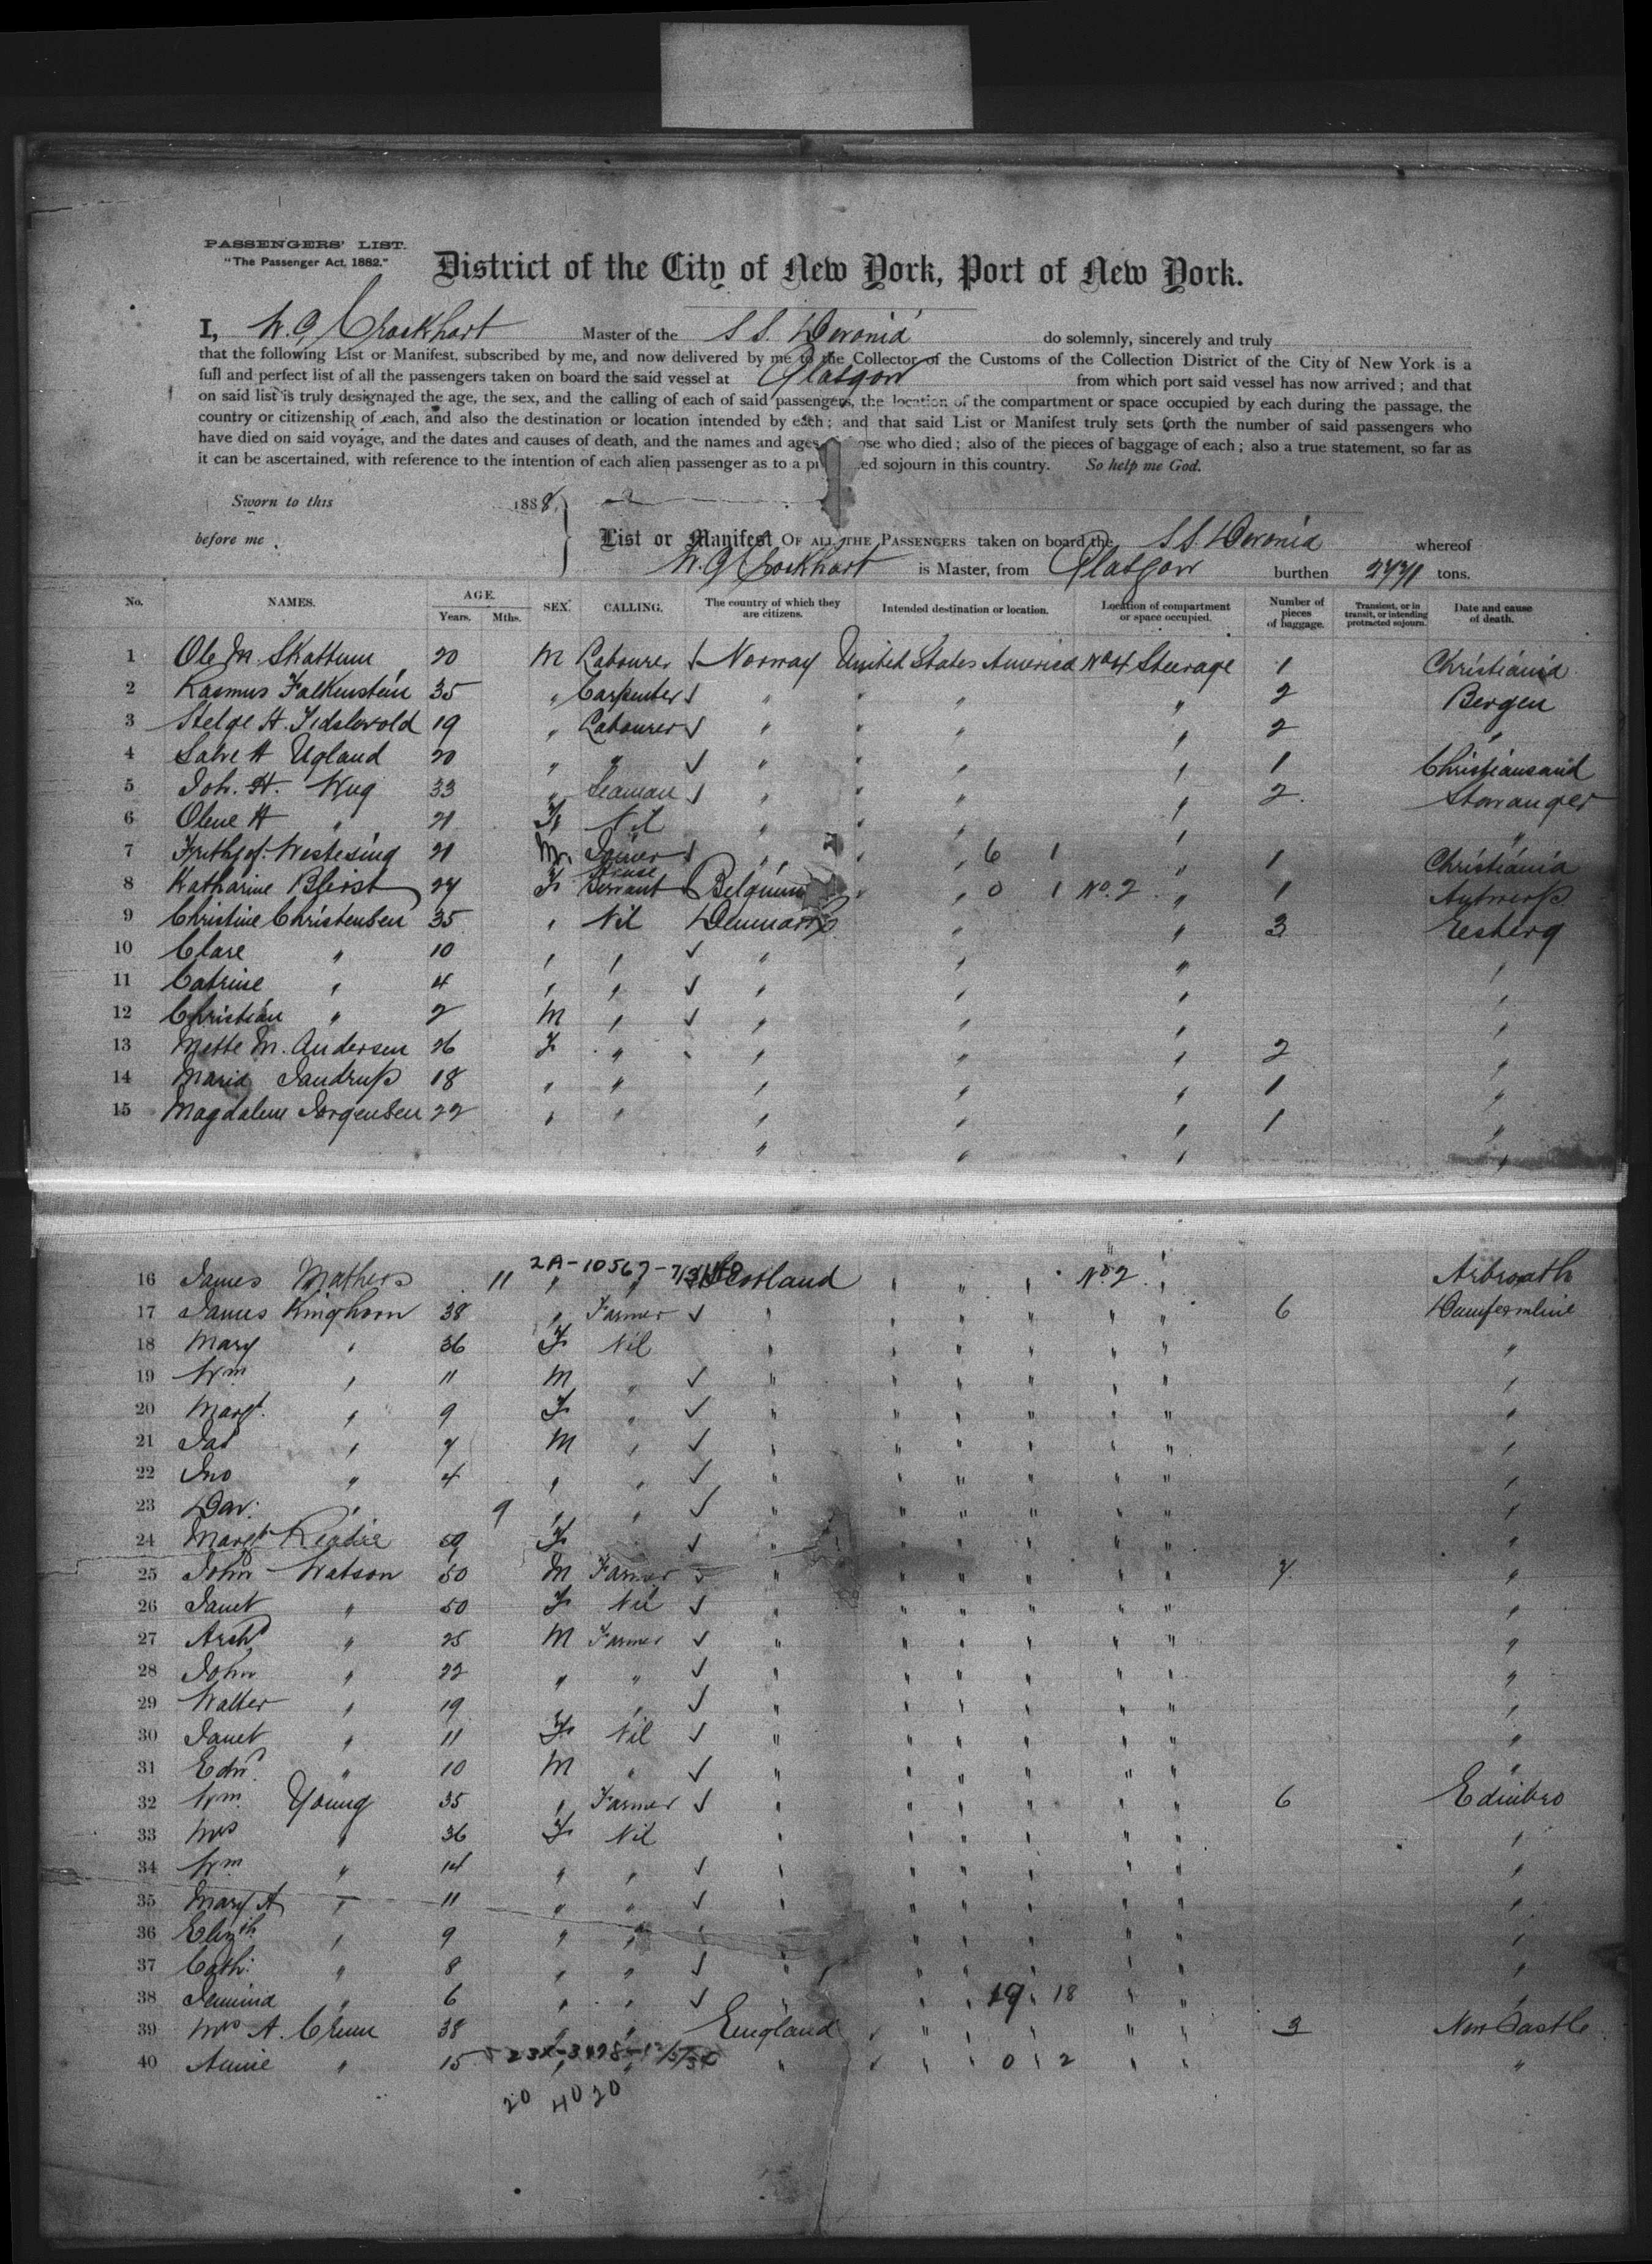 PASSENGERS' LIST.
"The Passenger Act, 1882."
District of the City of New York, Port of New York.
I, W. G. Crockhart Master of the S S. Devonia do solemnly, sincerely and truly
that the following List or Manifest, subscribed by me, and now delivered by me to the Collector of the Customs of the Collection District of the City of New York is a
full and perfect list of all the passengers taken on board the said vessel at Glasgow from which port said vessel has now arrived; and that
on said list is truly designated the age, the sex, and the calling of each of said passengers, the location of the compartment or space occupied by each during the passage, the
country or citizenship of each, and also the destination or location intended by each; and that said List or Manifest truly sets forth the number of said passengers who
have died on said voyage, and the dates and causes of death, and the names and ages ose who died; also of the pieces of baggage of each; also a true statement, so far as
it can be ascertained, with reference to the intention of each alien passenger as to a ed sojourn in this country. So help me God.
Sworn to this 1888,
before me
List or Manifest OF ALL THE PASSENGERS taken on board the S S. Devonia whereof
W. G Crockhart is Master, from Glasgow burthen tons.
No. NAMES. AGE. Years. Mths. SEX. CALLING. The country of which they are citizens. Intended destination or location. Location of compartment or space occupied. Number of pieces of baggage. Transient, or in transit, or intending protracted sojourn. Date and cause of death.
1 Ole M. Skattum 20 M Labourer Norway United States America No 4 Steerage 1 Christiania
2 Rasmus Falkenstein 35 " Carpenter " " " " 2 Bergen
3 19 " Labourer " " " " 2 "
4 Salve H Ugland 20 " " " " " " 1 Christiansand
5 Joh. H. Wug 33 " Seaman " " " " 2 Stavanger
6 Olene H " 21 F Nil " " " " "
7 21 M Joiner " " " 6 1 " 1 Christiania
8 Katharine 27 F House Servant Belgium " " 0 1 No. 2 " 1 Antwerp
9 Christine Christensen 35 " Nil Denmark " " 3 Esberg
10 Clare " 10 " " " " " "
11 Catrine " 4 " " " " " "
12 Christian " 2 M " " " " "
13 Mette M. Andersen 26 F " " " " 2 "
14 Maria Jandrup 18 " " " " " 1 "
15 Magdalene Jorgensen 22 " " " " " 1 "
" " " "
2A-10567-
16 James Mathers 11 " " Scotland " " " No. 2 " Arbroath
17 James Kinghorn 38 " Farmer " " " " " " 6 Dunfermline
18 Mary " 36 F Nil " " " " " " "
19 Wm " 11 M " " " " " " " "
20 Margt. " 9 F " " " " " " " "
21 Jas " 7 M " " " " " " " "
22 Jno " 4 " " " " " " " " "
23 Dav: " 9 " " " " " " " " "
24 Margt Readie 59 F " " " " " " "
25 John Watson 50 M Farmer " " " " " " 7 "
26 Janet " 50 F Nil " " " " " " "
27 Archd " 25 M Farmer " " " " " " "
28 John " 22 " " " " " " " " "
29 Walter " 19 " " " " " " " "
30 Janet " 11 F Nil " " " " " " "
31 Edwd " 10 M " " " " " " " "
32 Wm. Young 35 " Farmer " " " " " " 6 Edinbro
33 Mrs " 36 F Nil " " " " " " "
34 Wm " 14 " " " " " " " " "
35 Mary A " 11 " " " " " " " " "
36 Elizth " 9 " " " " " " " "
37 Cath: " 8 " " " " " " " " "
38 Jemima " 6 " " " " " 19 18 " " "
39 Mrs A. 38 " " England " " " " " " 3 New Castle
40 Annie " 15 " " " " " 0 2 " " "
20 40 20